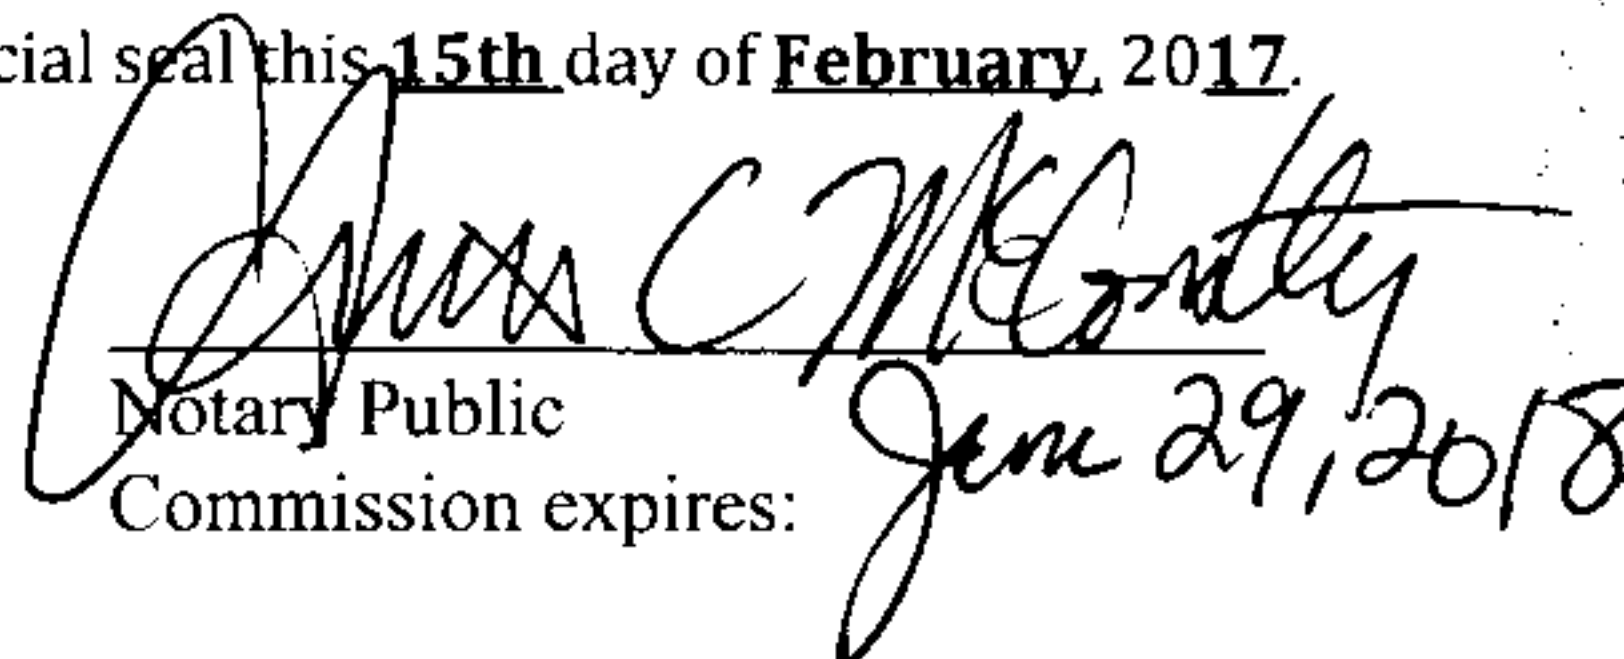 cial seal this 15th day of February, 2017.
C
Notary Public
Commission expires: June 29, 2018